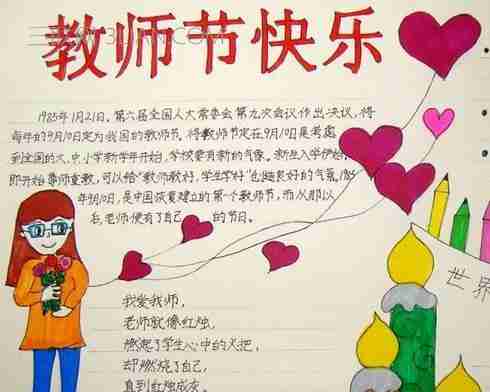 教师节快乐
1985年1月21日，第六届全国人大常委会第九次会议作出决议，将
每年的9月10日定为我国的教师节。将教师节定在9月10日是考虑
到全国的大、中、小学新学年开始，学校要有新的气象。新生入学伊始，
即开始尊师重教，可以给"教师教好，学生学好"创造良好的气氛。1985
年9月10日，是中国恢复建立的第一个教师节，而从那以
后老师便有了自己的节日。
我爱我师，
老师就像红烛，
燃起了学生心中的火把，
却燃烧了自己，
直到红烛成灰。
世界